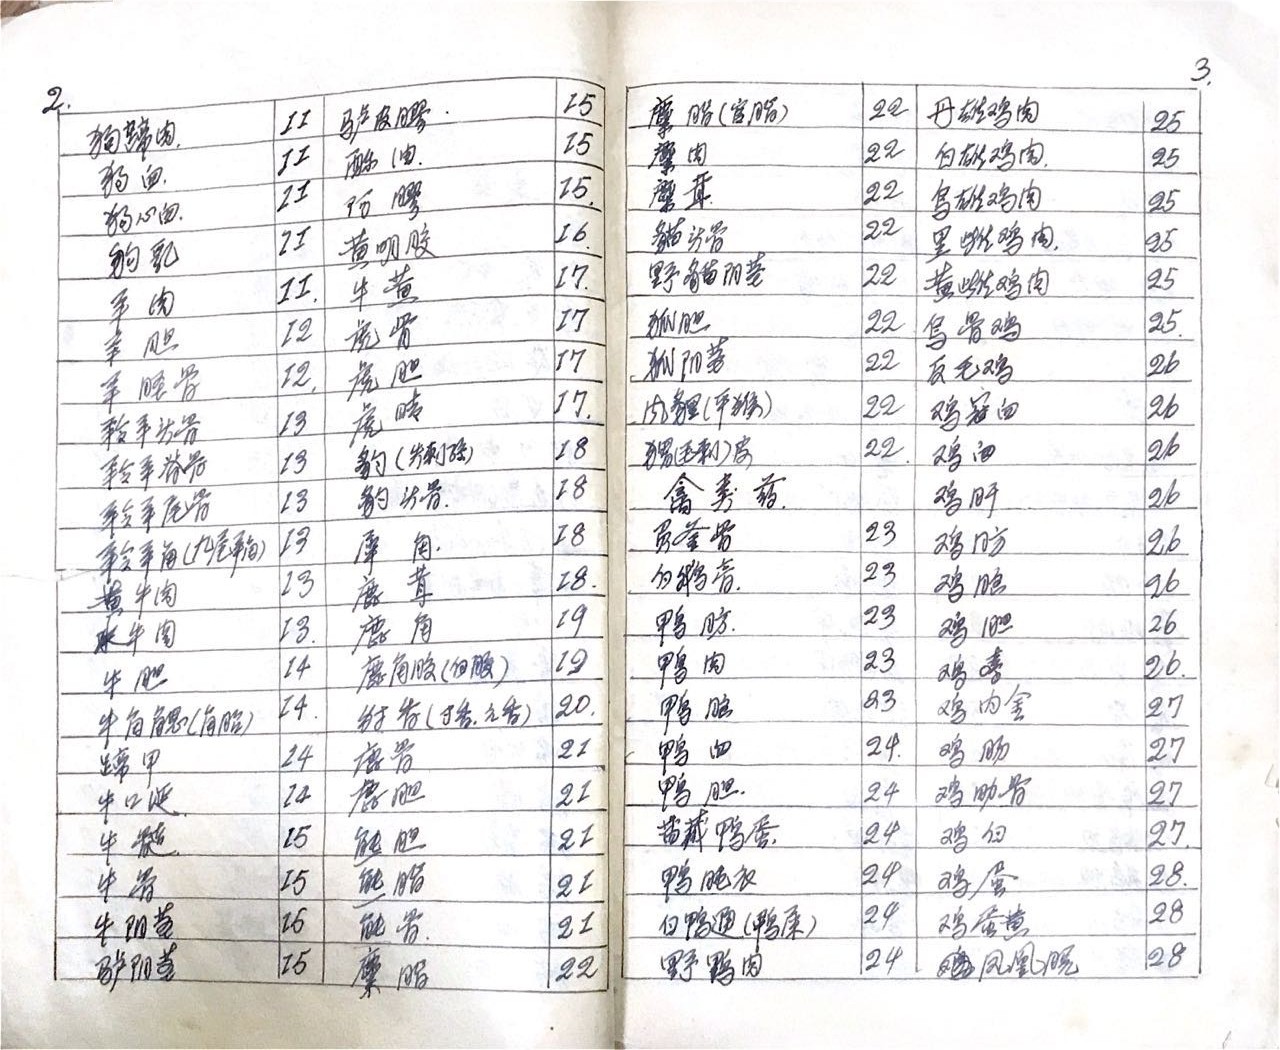 2.
狗蹄肉. 11 驴皮膠. 15
狗血. 11 酥油. 15
狗心血. 11 阿膠 15.
狗乳 11 黄明胶 16.
羊肉 11. 牛黄 17.
羊胆 12 虎骨 17
羊胫骨 12. 虎胆 17
羚羊头骨 13 虎睛 17.
羚羊脊骨 13 豹 18
羚羊尾骨 13 豹头骨. 18
羚羊角(九尾羊角) 13 犀角. 18
黄牛肉 13 鹿茸 18.
水牛肉 13. 鹿角 19
牛胆 14 鹿角胶(白胶) 19
牛角䚡(角胎) 14. 麝香(寸香.元香) 20.
蹄甲 14 鹿骨 21
牛口涎 14 鹿胆 21
牛髓. 15 熊胆 21
牛骨 15 熊脂 21
牛阴茎 16 熊骨. 21
驴阴茎 15 麋脂 22
3.
麋脂(官脂) 22 丹雄鸡肉 25
麋肉 22 白雄鸡肉. 25
麋茸. 22 乌雄鸡肉 25
貓头骨 22 黑雌鸡肉. 25
野貓阴茎 22 黄雌鸡肉 25
狐胆 22 乌骨鸡 25.
狐阴茎 22 反毛鸡 26
肉貍 22 鸡冠血 26
猬(毛刺)皮 22. 鸡血 26
禽类药. 鸡肝 26
23 鸡肪 26
白鹅膏. 23 鸡脑 26
鸭肪. 23 鸡胆 26
鸭肉 23 鸡嗉 26.
鸭脑 23 鸡内金 27
鸭血 24. 鸡肠 27
鸭胆. 24 鸡肋骨 27
鸭蛋. 24 鸡白 27.
鸭肫衣 24 鸡蛋 28.
白鸭通(鸭屎) 24 鸡蛋黄 28
野鸭肉 24 凤凰脱 28